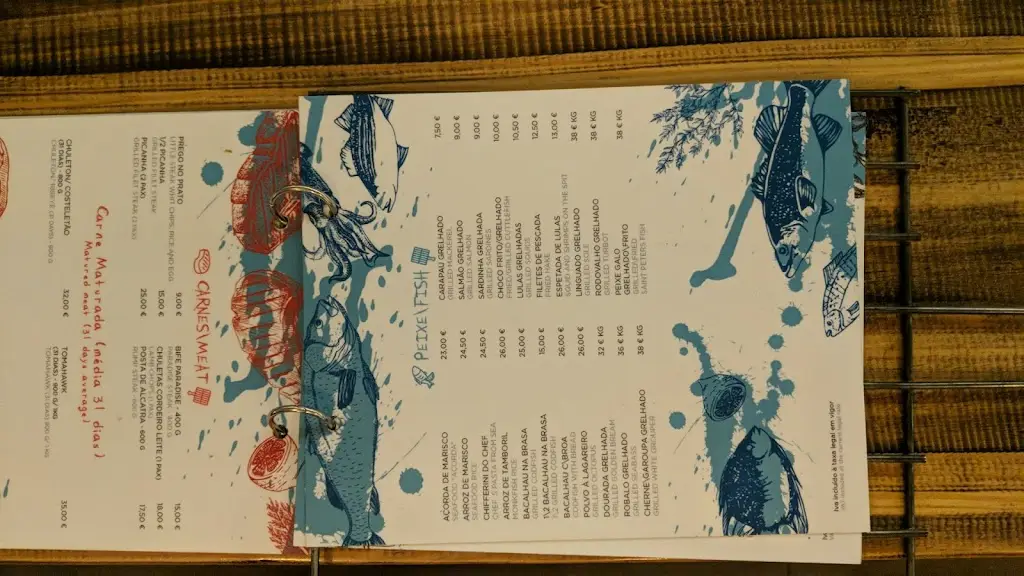 PEIXE\FISH
AÇORDA DE MARISCO 23,00 €
SEAFOOD "AÇORDA"
ARROZ DE MARISCO 24,50 €
SEAFOOD RICE
CHIFFERINI DO CHEF 24,50 €
CHEF´S PASTA FROM SEA
ARROZ DE TAMBORIL 26,00 €
MONKFISH RICE
BACALHAU NA BRASA 25,00 €
GRILLED CODFISH
1\2 BACALHAU NA BRASA 15,00 €
1\2 GRILLED CODFISH
BACALHAU C\BROA 26,00 €
CODFISH WITH BREAD
POLVO À LAGAREIRO 26,00 €
GRILLED OCTOPUS
DOURADA GRELHADA 32 € KG
GRILLED GOLDEN BREAM
ROBALO GRELHADO 36 € KG
GRILLED SEABASS
CHERNE\GAROUPA GRELHADO 38 € KG
GRILLED WHITE GROUPER
CARAPAU GRELHADO 7,50 €
GRILLED MACKEREL
SALMÃO GRELHADO 9,00 €
GRILLED SALMON
SARDINHA GRELHADA 9,00 €
GRILLED SARDINES
CHOCO FRITO/GRELHADO 10,00 €
FRIED/GRILLED CUTTLEFISH
LULAS GRELHADAS 10,50 €
GRILLED SQUIDS
FILETES DE PESCADA 12,50 €
FRIED HAKE
ESPETADA DE LULAS 13,00 €
SQUID AND SHRIMPS ON THE SPIT
LINGUADO GRELHADO 38 € KG
GRILLED SOLE
RODOVALHO GRELHADO 38 € KG
GRILLED TORBOT
PEIXE GALO 38 € KG
GRELHADO\FRITO
GRILLED\FRIED
SAINT PETERS FISH
Iva incluído à taxa legal em vigor
CARNES\MEAT
PREGO NO PRATO 9,00 €
LITTLE STEAK WHIT CHIPS, RICE AND EGG
1/2 PICANHA 15,00 €
GRILLED FILET STEAK
PICANHA (2 PAX) 25,00 €
GRILLED FILET STEAK (2 PAX)
BIFE PARADISE - 400 G 15,00 €
PARADISE STEAK - 400 G
CHULETAS CORDEIRO LEITE (1 PAX) 18,00 €
LAMB CHOPS (1 PAX)
POSTA DE ALCATRA - 600 G 17,50 €
RUMP STEAK - 600 G
Carne Maturada (média 31 dias)
Matured meat (31 days average)
CHULETON/ COSTELETÃO 32,00 €
(31 DIAS) - 800 G
TOMAHAWK 35,00 €
(31 DIAS) - 900 G/ 1KG